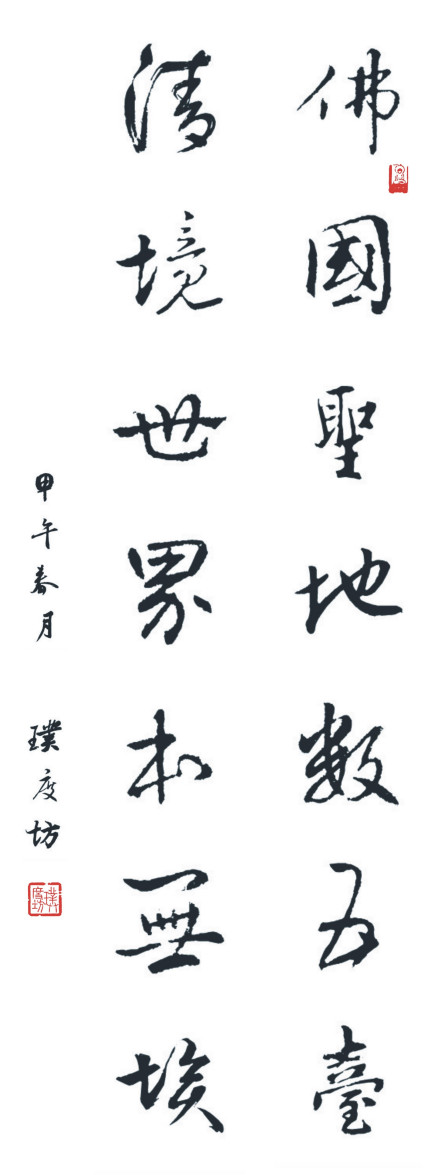 佛國聖地数五臺
清境世界本無埃
甲午春月 璞度坊
璞度坊